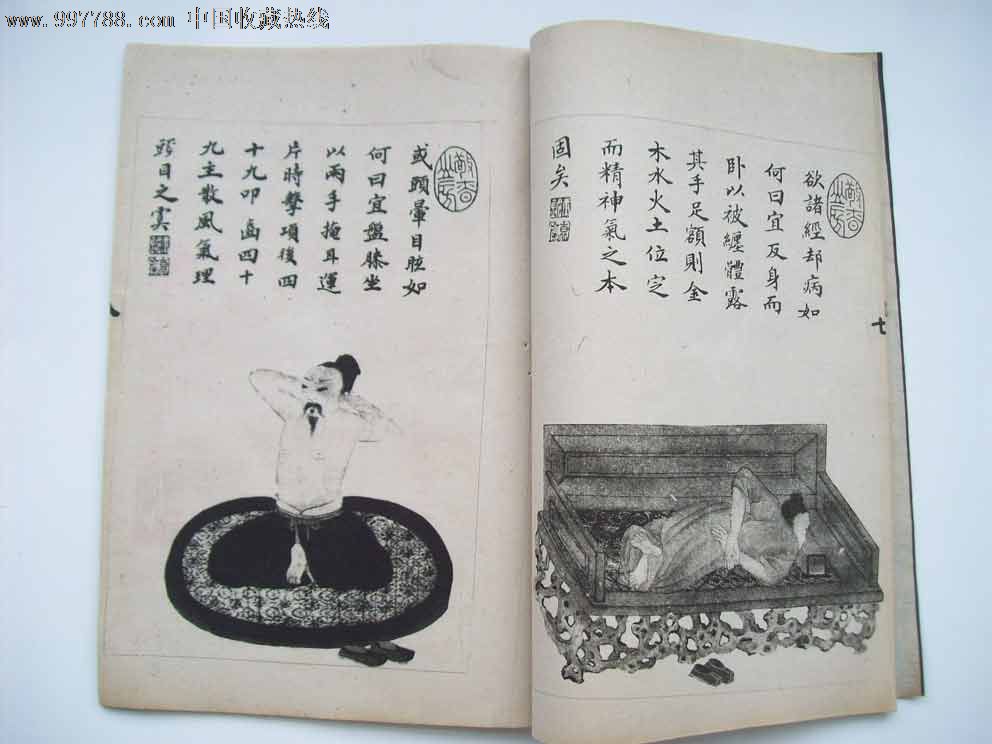 www.997788.com 中国收藏热线
欲諸經却病如
何曰宜反身而
卧以被纏體露
其手足額則金
木水火土位定
而精神氣之本
固矣
七
或頭暈目眩如
何曰宜盤膝坐
以兩手掩耳運
片時擊項後四
十九叩齒四十
九主散風氣理
頭目之